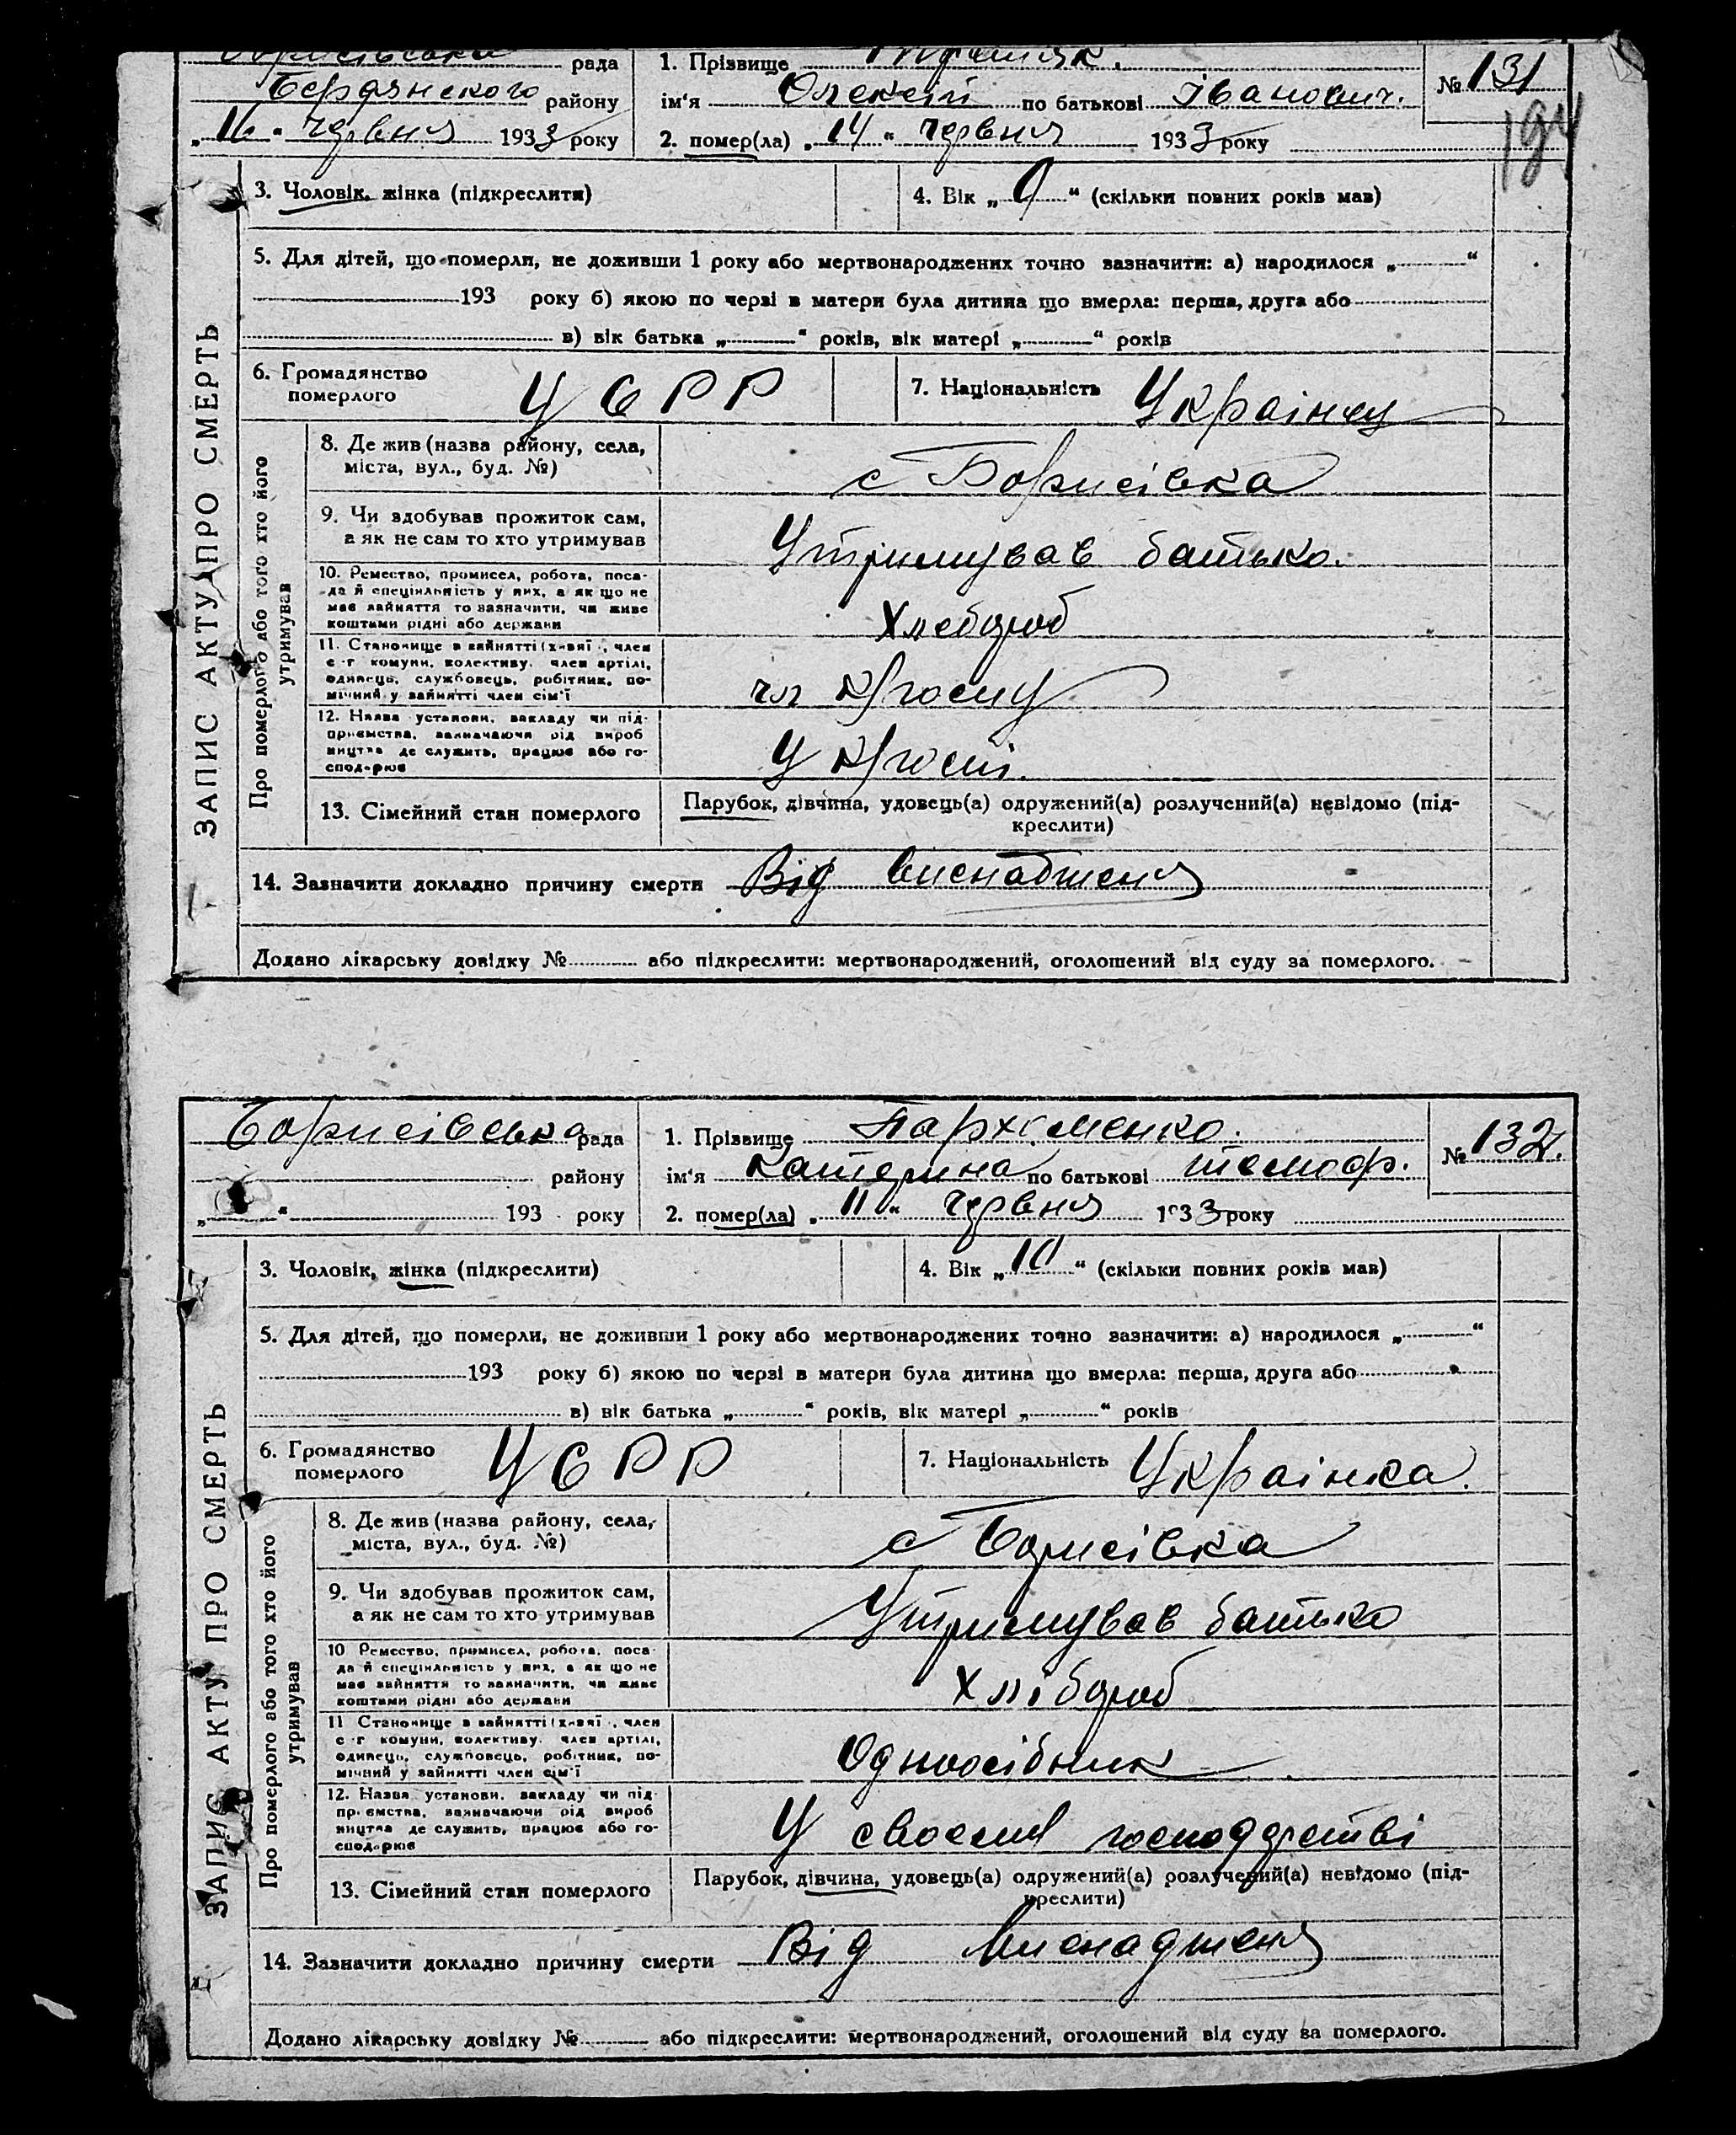 рада
1. Прізвище
№ 131
Бердянського району
ім'я Олексій по батькові Іванович.
„16“ червня 1933 року
2. помер(ла) „14“ червня 1933 року
194
3. Чоловік, жінка (підкреслити)
4. Вік „9“ (скільки повних років мав)
5. Для дітей, що померли, не доживши 1 року або мертвонароджених точно зазначити: а) народилося „ “
193 року б) якою по черзі в матери була дитина що вмерла: перша, друга або
в) вік батька „ “ років, вік матері „ “ років
6. Громадянство померлого УСРР
7. Національність Українец
ЗАПИС АКТУ ПРО СМЕРТЬ
Про померлого або того хто його утримував
8. Де жив (назва району, села,
міста, вул., буд. №)
с Борисівка
9. Чи здобував прожиток сам,
а як не сам то хто утримував
Утримував батько.
10. Ремество, промисел, робота, поса-
да й спеціяльність у них, а як що не
має зайняття то зазначити, чи живе
коштами рідні або держави
Хлебороб
11. Становище в зайнятті (хазяї , член
с-г комуни, колективу, член артілі,
одинець, службовець, робітник, по-
мічний у зайнятті член сім'ї
чл к/госпу
12. Назва установи, закладу чи під-
приємства, зазначаючи рід вироб
ництва де служить, працює або го-
сподарює
У к/госпі.
13. Сімейний стан померлого
Парубок, дівчина, удовець(а) одружений(а) розлучений(а) невідомо (під-
креслити)
14. Зазначити докладно причину смерти Від виснабженя
Додано лікарську довідку № або підкреслити: мертвонароджений, оголошений від суду за померлого.
Борисівська рада
1. Прізвище Пархоменко.
№ 132.
району
ім'я Катерина по батькові тимоф.
„ “ 193 року
2. помер(ла) „11“ червня 1933 року
3. Чоловік, жінка (підкреслити)
4. Вік „10“ (скільки повних років мав)
5. Для дітей, що померли, не доживши 1 року або мертвонароджених точно зазначити: а) народилося „ “
193 року б) якою по черзі в матери була дитина що вмерла: перша, друга або
в) вік батька „ “ років, вік матері „ “ років
6. Громадянство померлого УСРР
7. Національність Українка.
ЗАПИС АКТУ ПРО СМЕРТЬ
Про померлого або того хто його утримував
8. Де жив (назва району, села,
міста, вул., буд. №)
с Борисівка
9. Чи здобував прожиток сам,
а як не сам то хто утримував
Утримував батько
10 Ремество, промисел, робота, поса-
да й спеціяльність у них, а як що не
має зайняття то зазначити, чи живе
коштами рідні або держави
Хлібороб
11 Становище в зайнятті (хазяї , член
с-г комуни, колективу, член артілі,
одинець, службовець, робітник, по-
мічний у зайнятті член сім'ї
Одноосібник
12. Назва установи, закладу чи під-
приємства, зазначаючи рід вироб
ництва де служить, працює або го-
сподарює
У своєму господарстві
13. Сімейний стан померлого
Парубок, дівчина, удовець(а) одружений(а) розлучений(а) невідомо (під-
креслити)
14. Зазначити докладно причину смерти Від виснадженя
Додано лікарську довідку № або підкреслити: мертвонароджений, оголошений від суду за померлого.